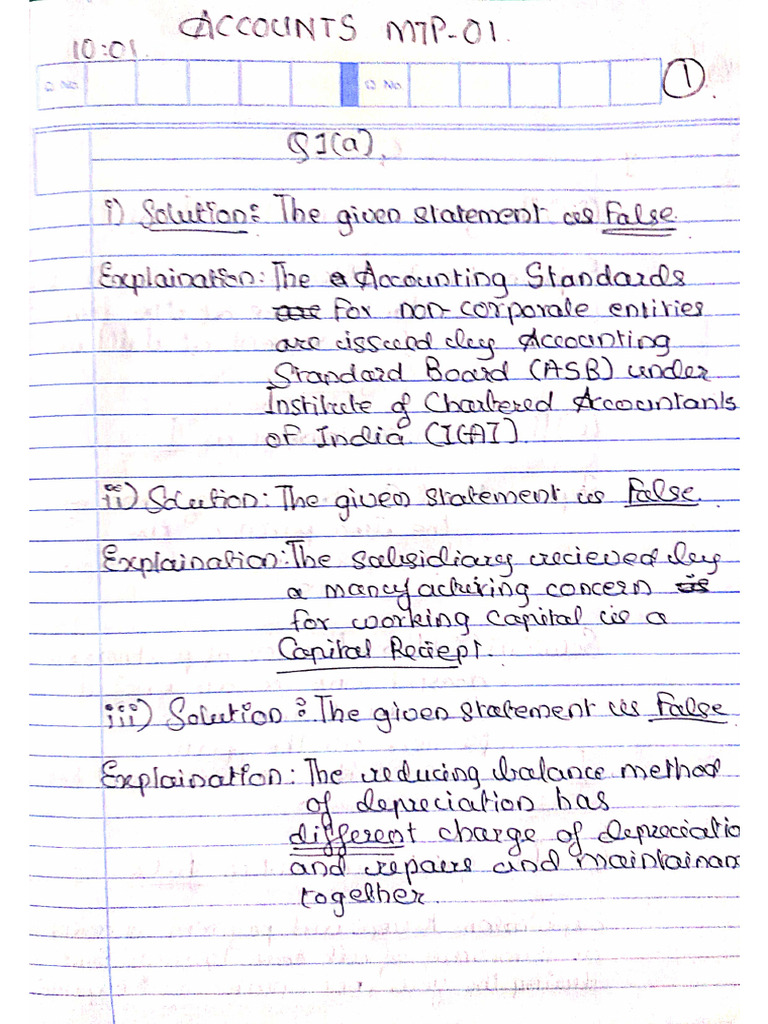 ACCOUNTS MTP-01.
10:01.
Q No Q No 1
Q1(a).
i) Solution: The given statement is False.
Explaination: The Accounting Standards
are for non-corporate entities
are issued by Accounting
Standard Board (ASB) under
Institute of Chartered Accountants
of India (ICAI).
ii) Solution: The given statement is False.
Explaination: The subsidiary recieved by
a manufacturing concern is
for working capital is a
Capital Reciept.
iii) Solution: The given statement is False
Explaination: The reducing balance method
of depreciation has
different charge of depreciatio
and repairs and maintainan
together.